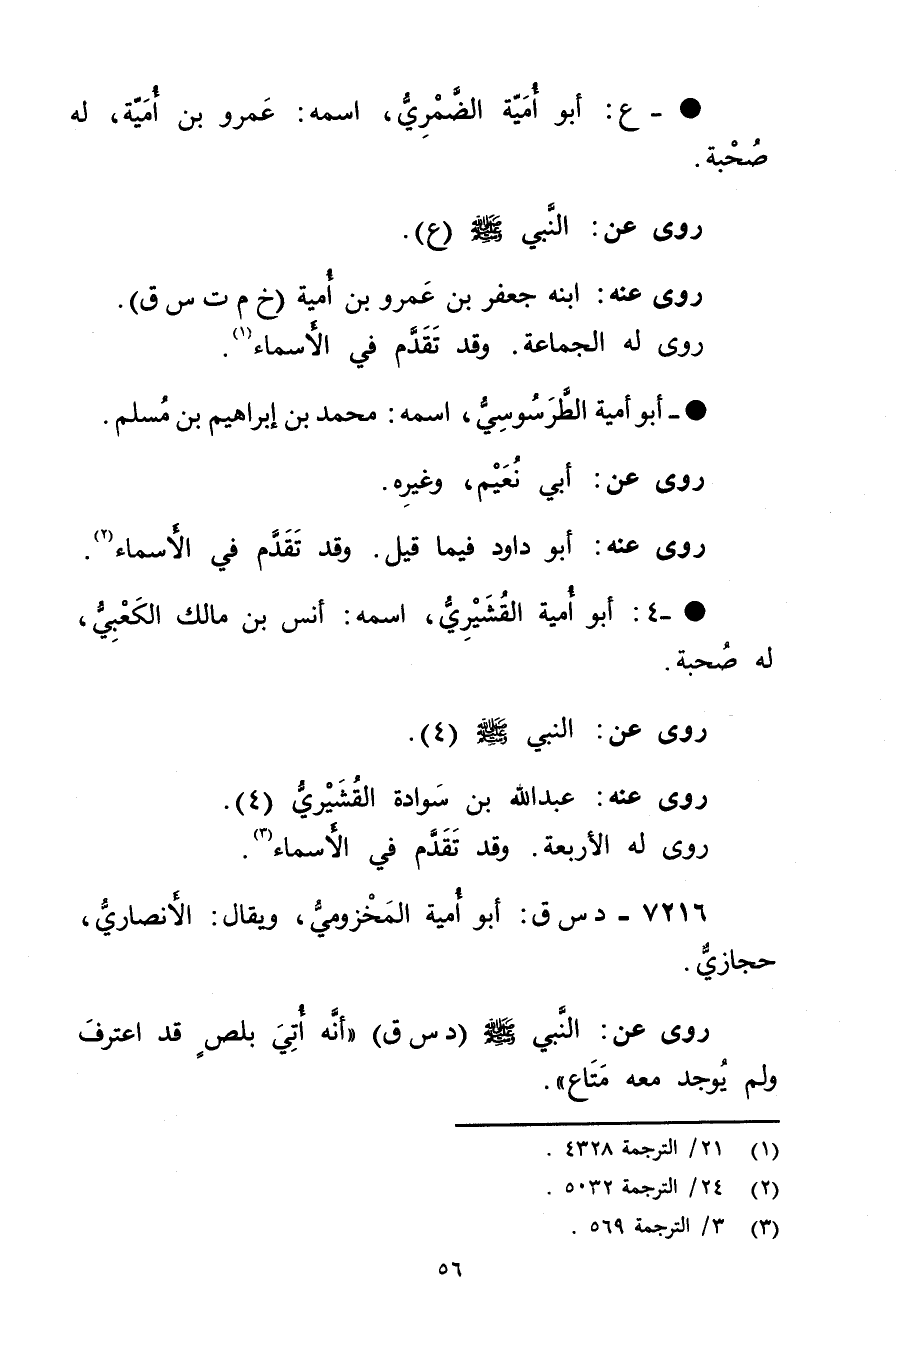 ● ـ ع: أبو أُمَيَّة الضَّمْرِيُّ، اسمه: عَمرو بن أُمَيَّة، له
صُحْبة.
روى عن: النَّبي ﷺ (ع).
روى عنه: ابنه جعفر بن عَمرو بن أُمية (خ م ت س ق).
روى له الجماعة. وقد تَقَدَّم في الأَسماء(١).
● ـ أبو أمية الطَّرَسُوسِيُّ، اسمه: محمد بن إبراهيم بن مُسلم.
روى عن: أبي نُعَيْم، وغيرِه.
روى عنه: أبو داود فيما قيل. وقد تَقَدَّم في الأَسماء(٢).
● ـ٤: أبو أُمية القُشَيْرِيُّ، اسمه: أنس بن مالك الكَعْبِيُّ،
له صُحبة.
روى عن: النبي ﷺ (٤).
روى عنه: عبدالله بن سَوادة القُشَيْرِيُّ (٤).
روى له الأربعة. وقد تَقَدَّم في الأَسماء(٣).
٧٢١٦ ـ د س ق: أبو أُمية المَخْزوميُّ، ويقال: الأَنصاريُّ،
حجازيٌّ.
روى عن: النَّبي ﷺ (د س ق) «أنَّه أُتِيَ بلصٍ قد اعترفَ
ولم يُوجد معه مَتَاع».
(١) ٢١/ الترجمة ٤٣٢٨ .
(٢) ٢٤/ الترجمة ٥٠٣٢ .
(٣) ٣/ الترجمة ٥٦٩ .
٥٦